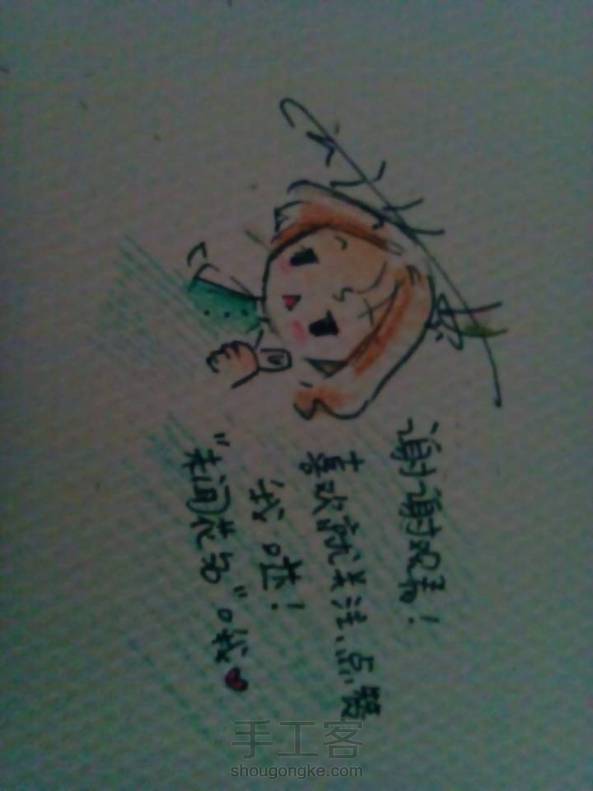 谢谢观看!
喜欢就关注、点赞
我哒!
"未闻花名"哦
手工客
shougongke.com